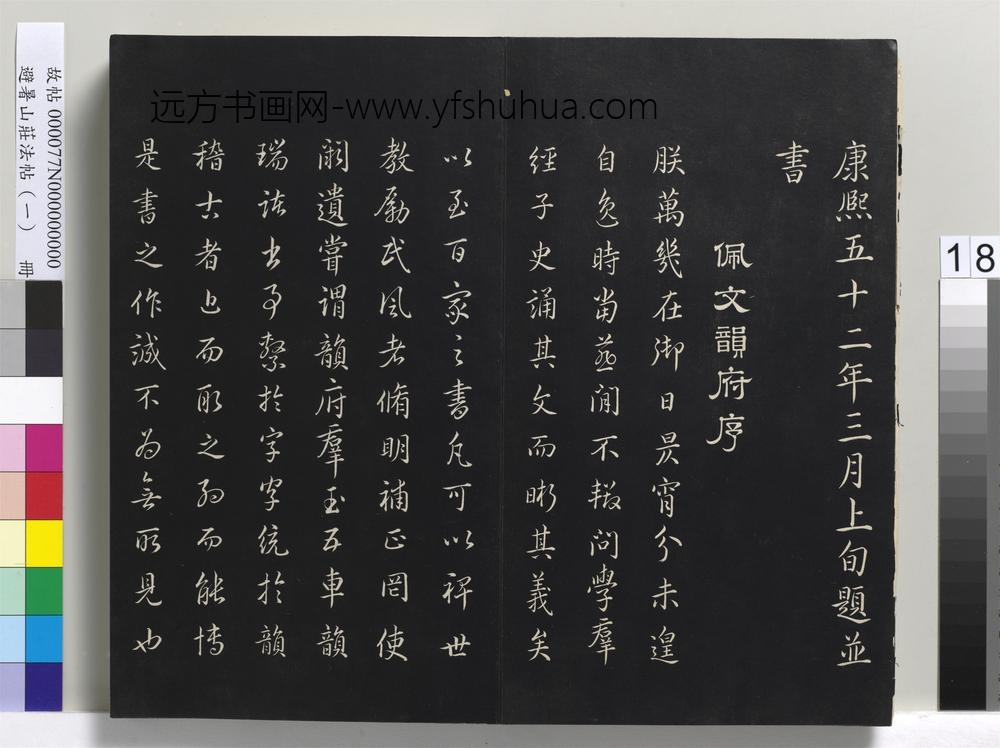 远方书画网-www.yfshuhua.com
康熙五十二年三月上旬題並
書
佩文韻府序
朕萬幾在御日昃宵分未遑
自逸時當燕閒不輟問學羣
經子史誦其文而晰其義矣
以至百家之書凡可以裨世
教勵民風者脩明補正罔使
闕遺嘗謂韻府羣玉五車韻
瑞諸書事繫於字字統於韻
稽古者近而取之約而能博
是書之作誠不為無所見也
故帖000077N000000000
避暑山莊法帖(一) 冊
18